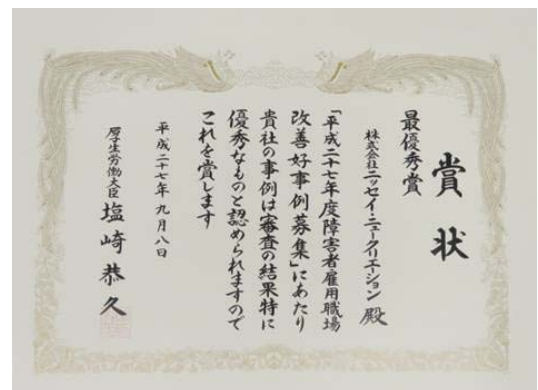 賞状
最優秀賞
株式会社ニッセイ・ニュークリエーション 殿
「平成二十七年度障害者雇用職場
改善好事例募集」にあたり
貴社の事例は審査の結果特に
優秀なものと認められますので
これを賞します
平成二十七年九月八日
厚生労働大臣 塩崎恭久